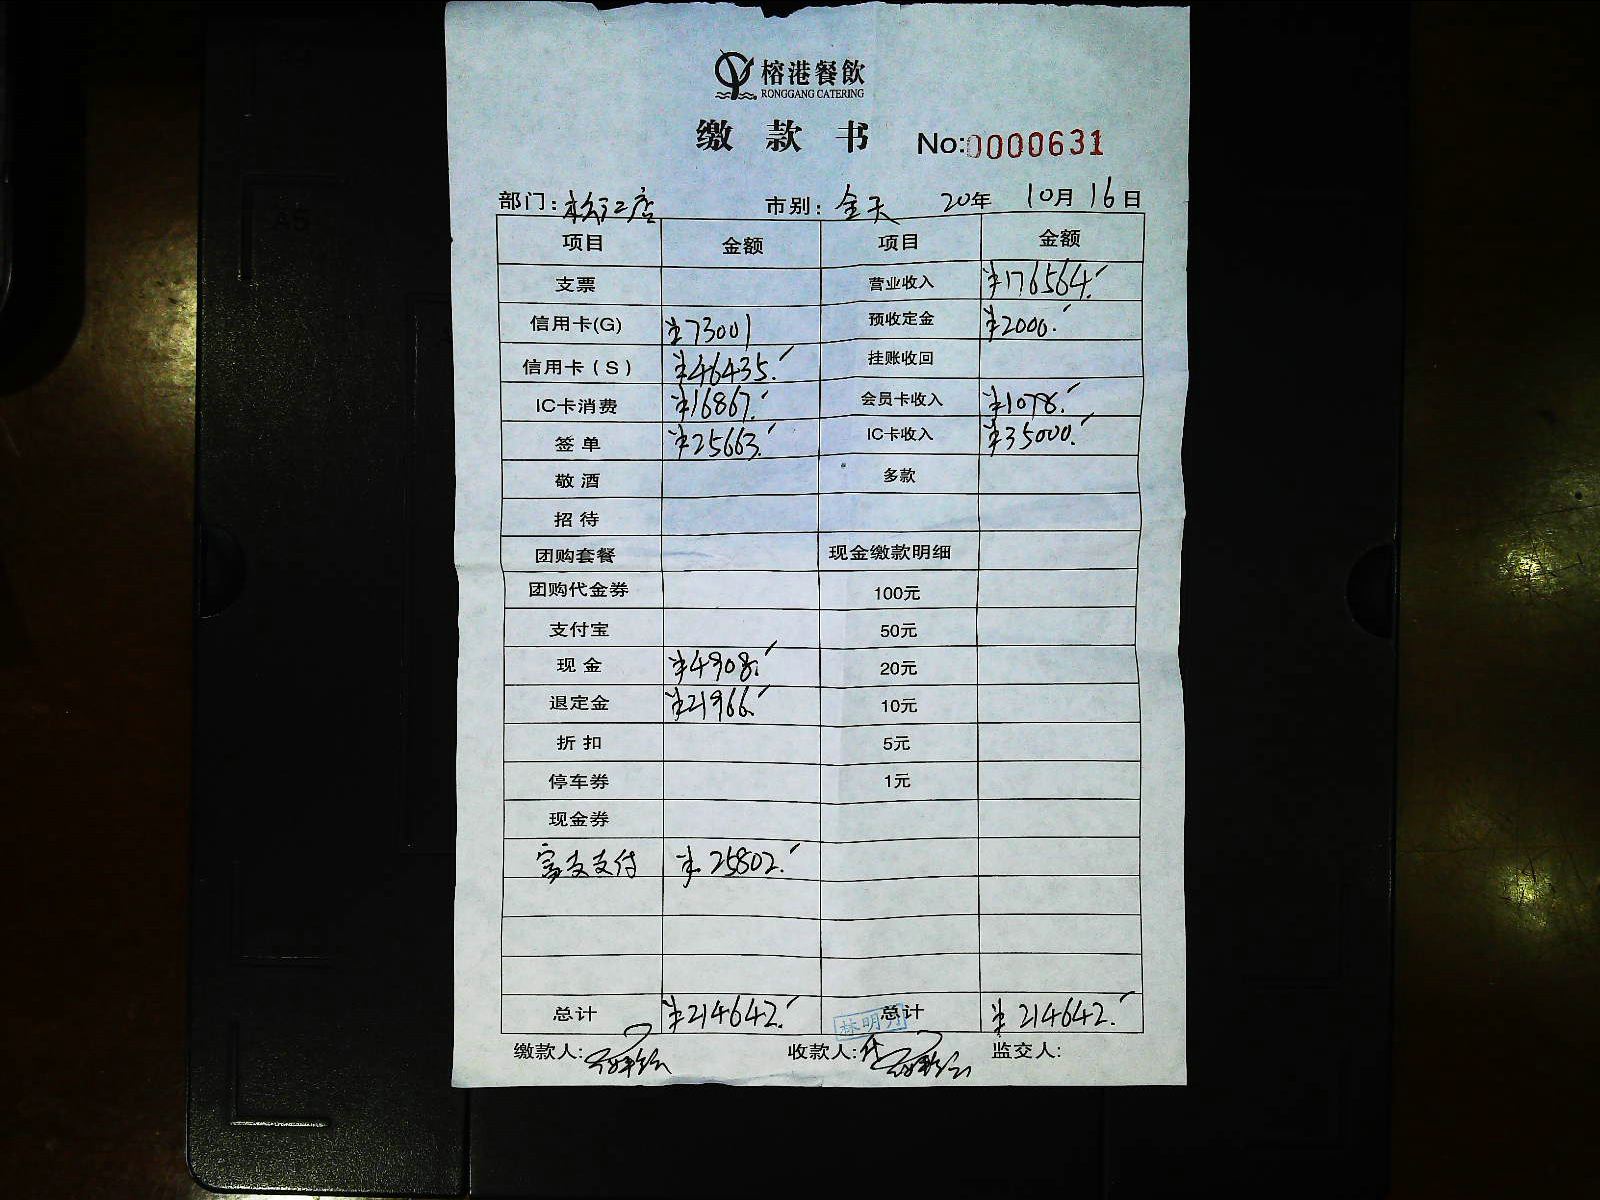 榕港餐飲
RONGGANG CATERING
缴款书 No:0000631
部门:松江店 市别:全天 20年 10月 16日
项目 金额 项目 金额
支票 营业收入 ¥176564.
信用卡(G) ¥73001 预收定金 ¥2000.
信用卡(S) ¥46435. 挂账收回
IC卡消费 ¥16867. 会员卡收入 ¥1078.
签单 ¥25663. IC卡收入 ¥35000.
敬酒 多款
招待
团购套餐 现金缴款明细
团购代金券 100元
支付宝 50元
现金 ¥4908. 20元
退定金 ¥21966. 10元
折扣 5元
停车券 1元
现金券
富友支付 ¥25802.
总计 ¥214642. 总计 ¥214642.
林明月
缴款人: 收款人: 监交人:
A5